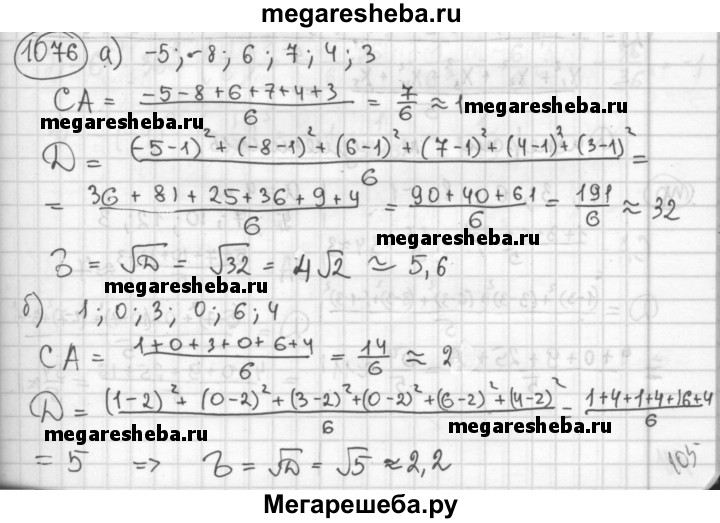 megaresheba.ru
1076 а) -5; -8; 6; 7; 4; 3
СА = (-5-8+6+7+4+3)/6 = 7/6 ≈ 1
megaresheba.ru megaresheba.ru
D = ((-5-1)² + (-8-1)² + (6-1)² + (7-1)² + (4-1)² + (3-1)²)/6 =
= (36 + 81 + 25 + 36 + 9 + 4)/6 = (90+40+61)/6 = 191/6 ≈ 32
megaresheba.ru
σ = √D = √32 = 4√2 ≈ 5,6
megaresheba.ru megaresheba.ru
б) 1; 0; 3; 0; 6; 4
СА = (1+0+3+0+6+4)/6 = 14/6 ≈ 2
D = ((1-2)² + (0-2)² + (3-2)² + (0-2)² + (6-2)² + (4-2)²)/6 = (1+4+1+4+16+4)/6
megaresheba.ru megaresheba.ru
= 5 => σ = √D = √5 ≈ 2,2
105
Мегарешеба.ру